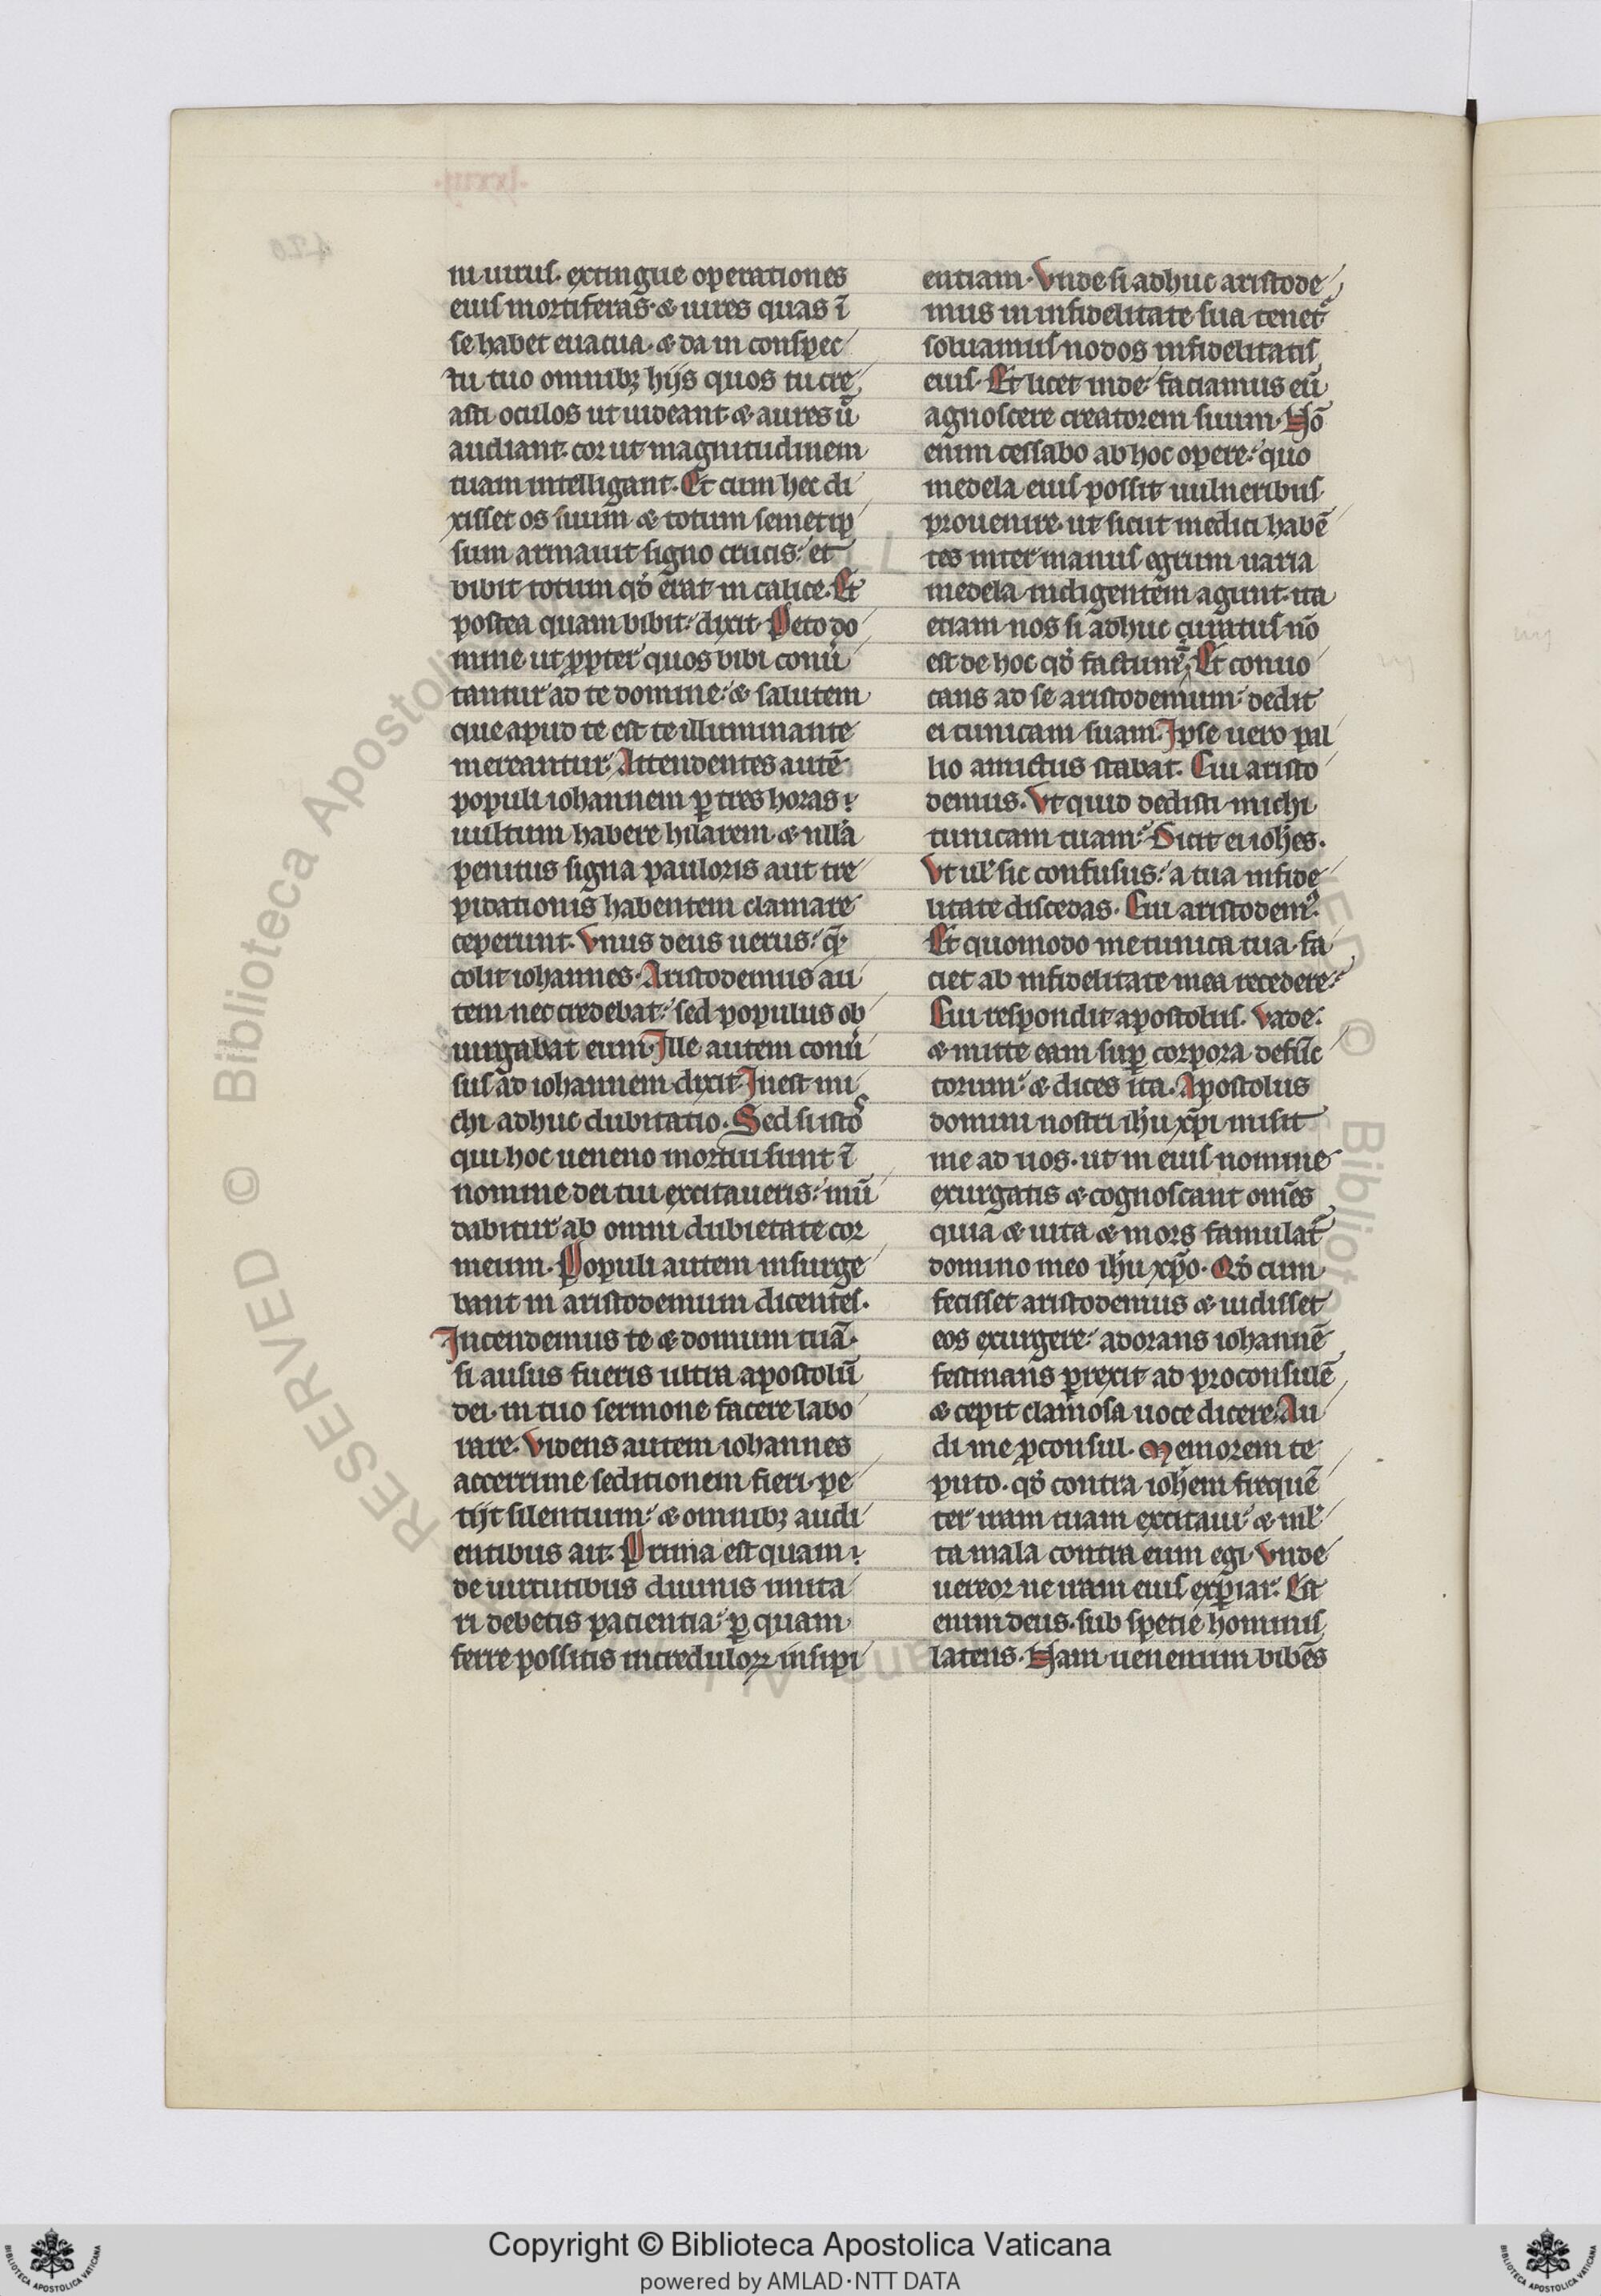 ni uirus. extingue operationes
eius mortiferas. & uires quas ī
se habet euacua. & da in conspec
tu tuo omnibꝫ hijs quos tu cre
asti oculos ut uideant & aures ū
audiant. cor ut magnitudinem
tuam intelligant. Et cum hec di
xisset os suum & totum semetip
sum armauit signo crucis: et
bibit totum qđ erat in calice. Et
postea quam bibit: dixit. Peto do
mine ut ꝓpter quos bibi conũ
tantur ad te domine: & salutem
que apud te est te illuminante
mereantur. Attendentes autē
populi iohannem ꝑ tres horas
uultum habere hilarem. & nlla
penitus signa pauloris aut tre
pidationis habentem clamare
ceperunt. Vnus deus uerus: q̄
colit iohannes. Aristodemus au
tem nec credebat: sed populus ob
iurgabat eum. Ille autem conũ
sus ad iohannem dixit. Inest mi
chi adhuc dubitatio. Sed si istos
qui hoc ueneno mortui sunt ī
nomine dei tui excitaueris: mū
dabitur ab omni dubietate cor
meum. Populi autem insurge
bant in aristodemum dicentes.
Incendemus te & domum tuā.
si ausus fueris ultra apostolū
dei. in tuo sermone facere labo
rare. Videns autem iohannes
accerrime seditionem fieri. pe
tijt silentium: & omnibꝫ audi
entibus ait. Prima est quam
de uirtutibus diuinis imita
ri debetis pacientia: ꝑ quam
ferre possitis increduloꝝ insipi
entiam. Vnde si adhuc aristode
mus in infidelitate sua tenet᷑
soluamus nodos infidelitatis
eius. Et licet inde faciamus eū
agnoscere creatorem suum. Nō
enim cessabo ab hoc opere: quo
medela eius possit uulneribus
prouenire. ut sicut medici habē
tes inter manus egrum uaria
medela indigentem agunt. ita
etiam nos si adhuc curatus nō
est de hoc qđ factum ē. Et conuo
cans ad se aristodemum: dedit
ei tunicam suam. Ipse uero pal
lio amictus stabat. Cui aristo
demus. Vt quid dedisti michi
tunicam tuam: Dicit ei ioħes.
Vt uł sic confusus: a tua infide
litate discedas. Cui aristodemꝰ.
Et quomodo me tunica tua. fa
ciet ab infidelitate mea recedere:
Cui respondit apostolus. Vade:
& mitte eam suꝑ corpora defūc
torum: & dices ita. Apostolus
domini nostri ihu xp̄i misit
me ad uos. ut in eius nomine
exurgatis & cognoscant om̄s
quia & uita & mors famulāt᷑
domino meo ihu xp̄o. Qđ cum
fecisset aristodemus & uidisset
eos exurgere: adorans iohannē
festinans ꝑrexit ad proconsulē
& cepit clamosa uoce dicere. Au
di me ꝓconsul. Memorem te
puto. qđ contra ioħem frequē
ter iram tuam excitaui: & ml̄
ta mala contra eum egi. Vnde
uereor ne iram eius exꝑiar. Est
enim deus. sub spetie hominis
latens. Nam uenenum bibēs
Copyright © Biblioteca Apostolica Vaticana
powered by AMLAD·NTT DATA